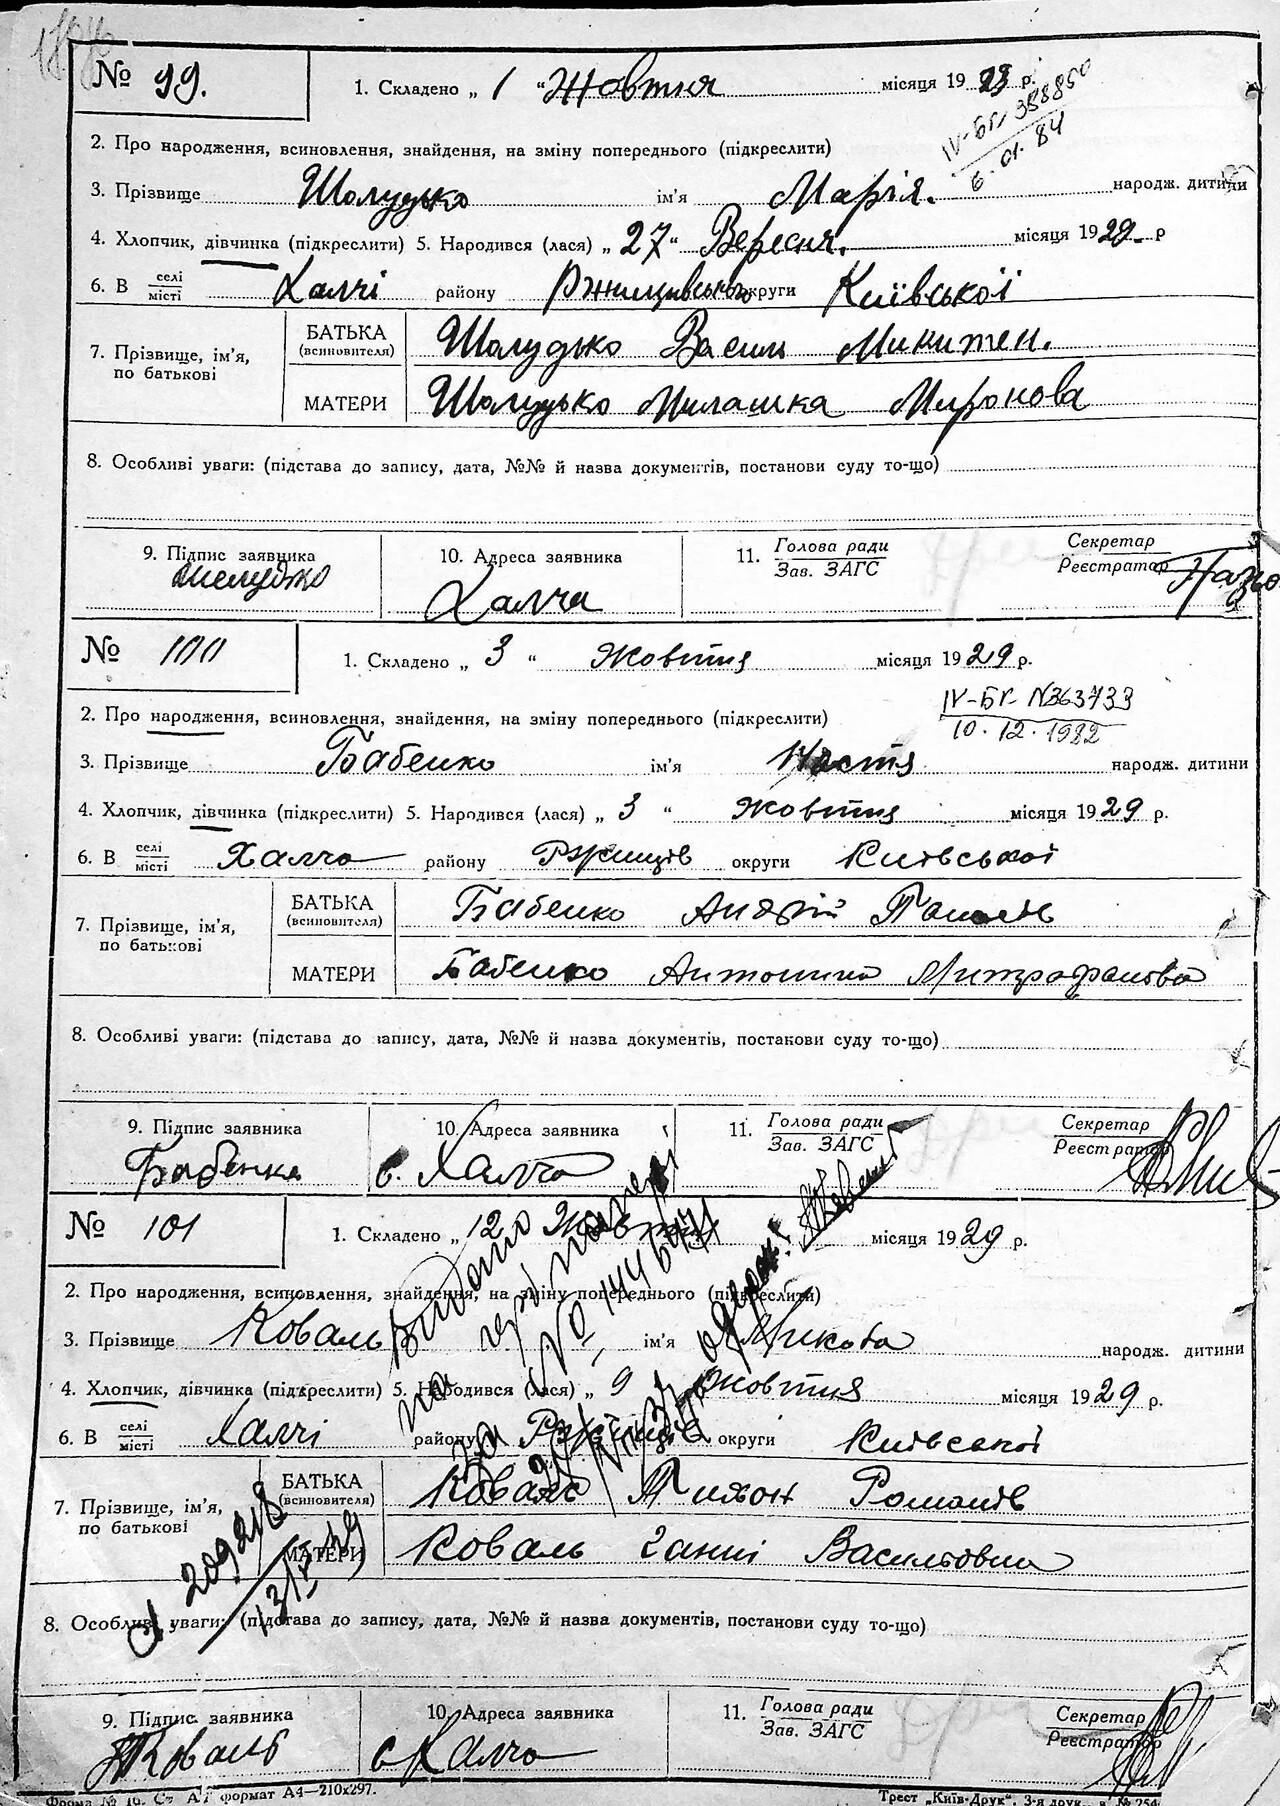 № 99.
1. Складено „ 1 “ Жовтня місяця 19 р.
IV-БГ 388850
6.01.84
2. Про народження, всиновлення, знайдення, на зміну попереднього (підкреслити)
3. Прізвище Шолудько ім'я Марія. народж. дитини
4. Хлопчик, дівчинка (підкреслити) 5. Народився (лася) „ 27 “ Вересня. місяця 1929. р
6. В селі/місті Халчі району округи Київської
7. Прізвище, ім'я, по батькові
БАТЬКА (всиновителя) Шолудько Василь
МАТЕРИ Шолудько Милашка Миронова
8. Особливі уваги: (підстава до запису, дата, №№ й назва документів, постанови суду то-що)
9. Підпис заявника
10. Адреса заявника
11. Голова ради / Зав. ЗАГС
Секретар / Реєстратор
Шелудко
Халча
№ 100
1. Складено „ 3 “ жовтня місяця 1929 р.
2. Про народження, всиновлення, знайдення, на зміну попереднього (підкреслити)
IV-БГ N363733
10.12.1982
3. Прізвище Бабенко ім'я Настя народж. дитини
4. Хлопчик, дівчинка (підкреслити) 5. Народився (лася) „ 3 “ жовтня місяця 1929 р.
6. В селі/місті Халча району Ржищів округи Київської
7. Прізвище, ім'я, по батькові
БАТЬКА (всиновителя) Бабенко Андрій
МАТЕРИ Бабенко Антонина Митрофанова
8. Особливі уваги: (підстава до запису, дата, №№ й назва документів, постанови суду то-що)
9. Підпис заявника
10. Адреса заявника
11. Голова ради / Зав. ЗАГС
Секретар / Реєстратор
Бабенко
с. Халча
№ 101
1. Складено „ 12 Жовтня місяця 1929 р.
2. Про народження, всиновлення, знайдення, на зміну попереднього (підкреслити)
3. Прізвище Коваль ім'я Микола народж. дитини
4. Хлопчик, дівчинка (підкреслити) 5. Народився (лася) „ 9 жовтня місяця 1929 р.
6. В селі/місті Халчі району Ржищів округи Київської
7. Прізвище, ім'я, по батькові
БАТЬКА (всиновителя) Коваль Тихон Романів
МАТЕРИ Коваль Ганні Василівна
Видано
на
за №
8. Особливі уваги: (підстава до запису, дата, №№ й назва документів, постанови суду то-що)
9. Підпис заявника
10. Адреса заявника
11. Голова ради / Зав. ЗАГС
Секретар / Реєстратор
Коваль
с. Халча
Форма № 16. Ст. А4 формат А4—210х297.
Трест „Київ-Друк“, 3-я друк., в. № 254